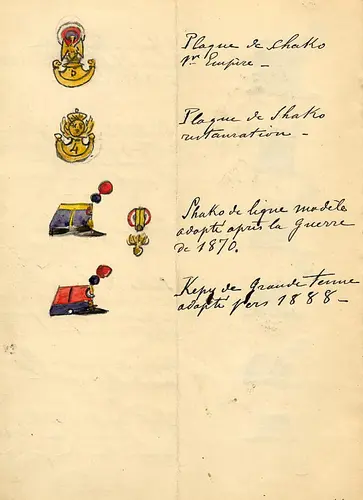 Plaque de shako
1er Empire —
Plaque de Shako
restauration —
Shako de ligne modèle
adopté après la Guerre
de 1870.
Kepy de Grande tenue
adopté vers 1888 —